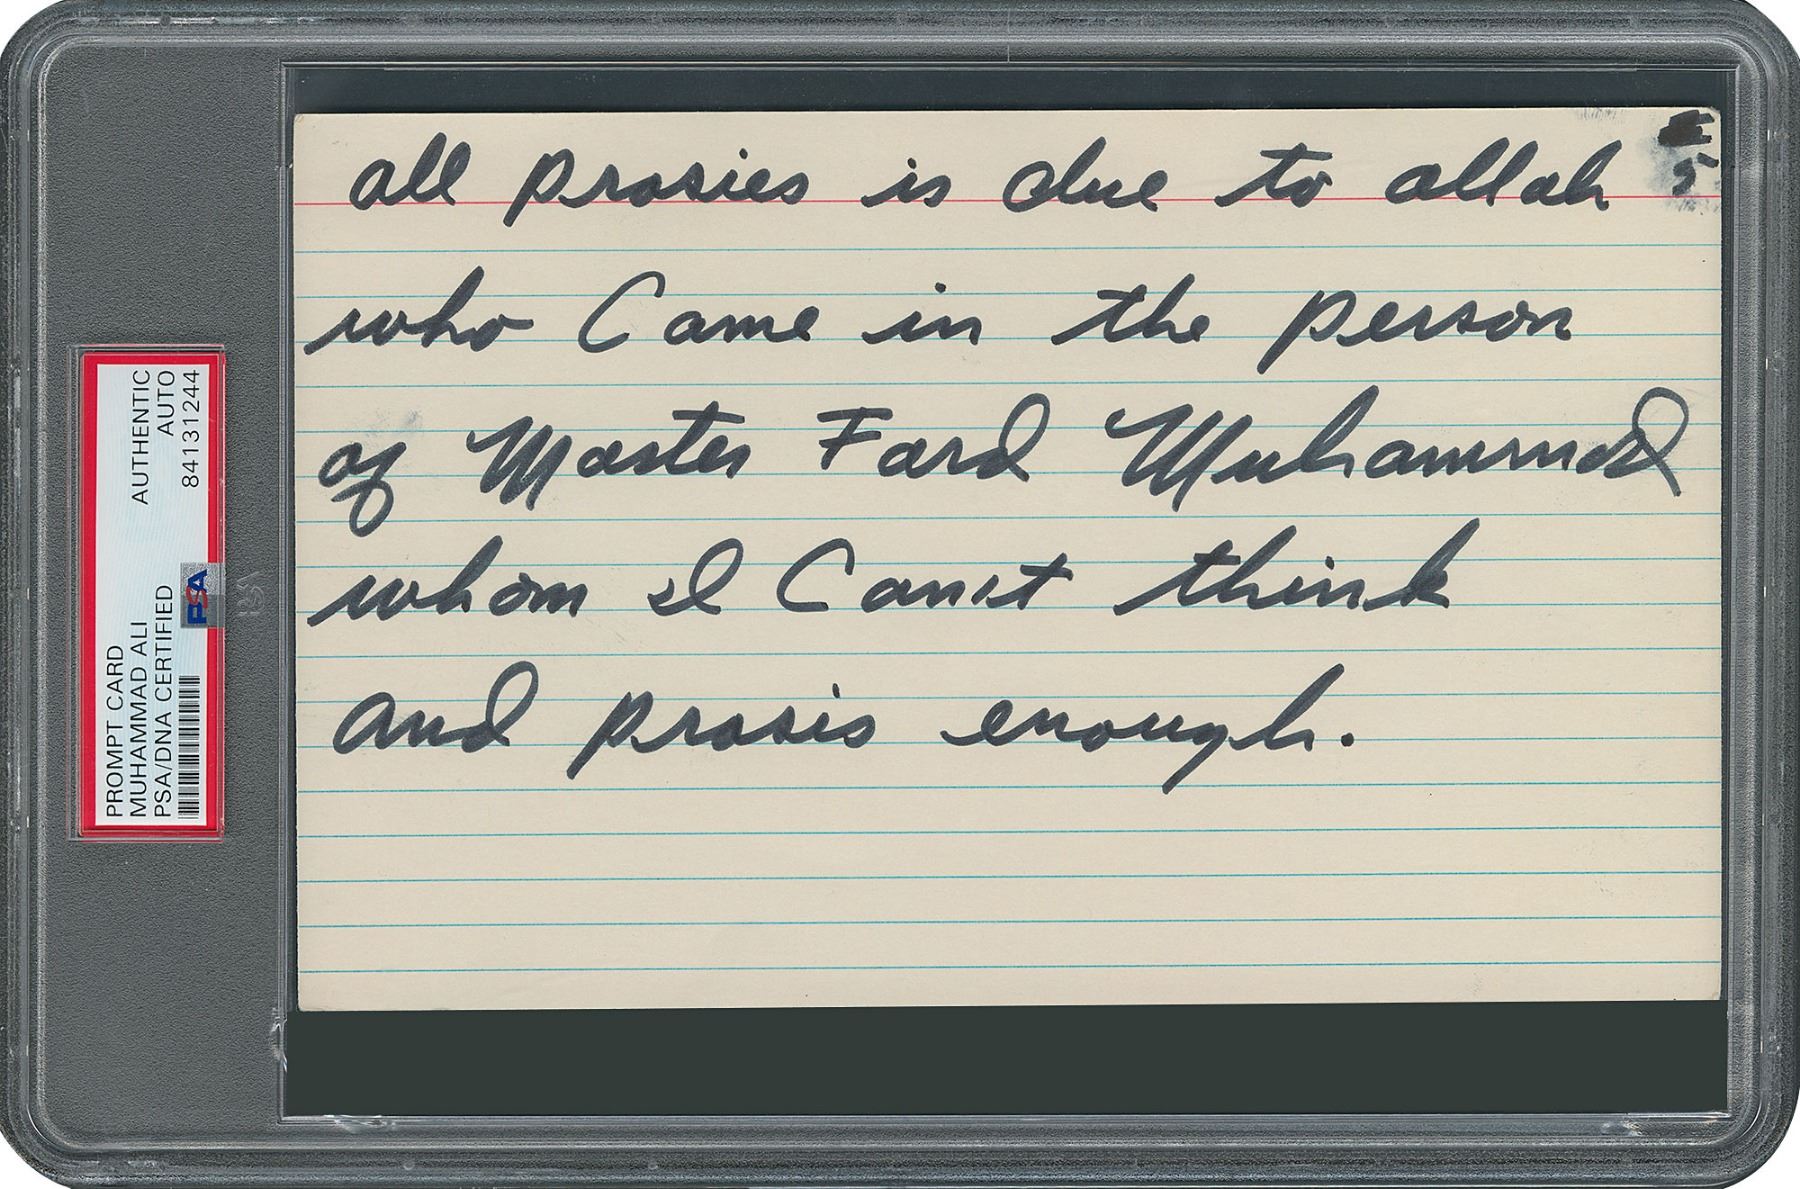 all prasies is due to allah
5
who Came in the person
of Master Fard Muhammad
whom I Can't think
and prasis enough.
PROMPT CARD
MUHAMMAD ALI
PSA/DNA CERTIFIED
AUTHENTIC
AUTO
84131244
PSA